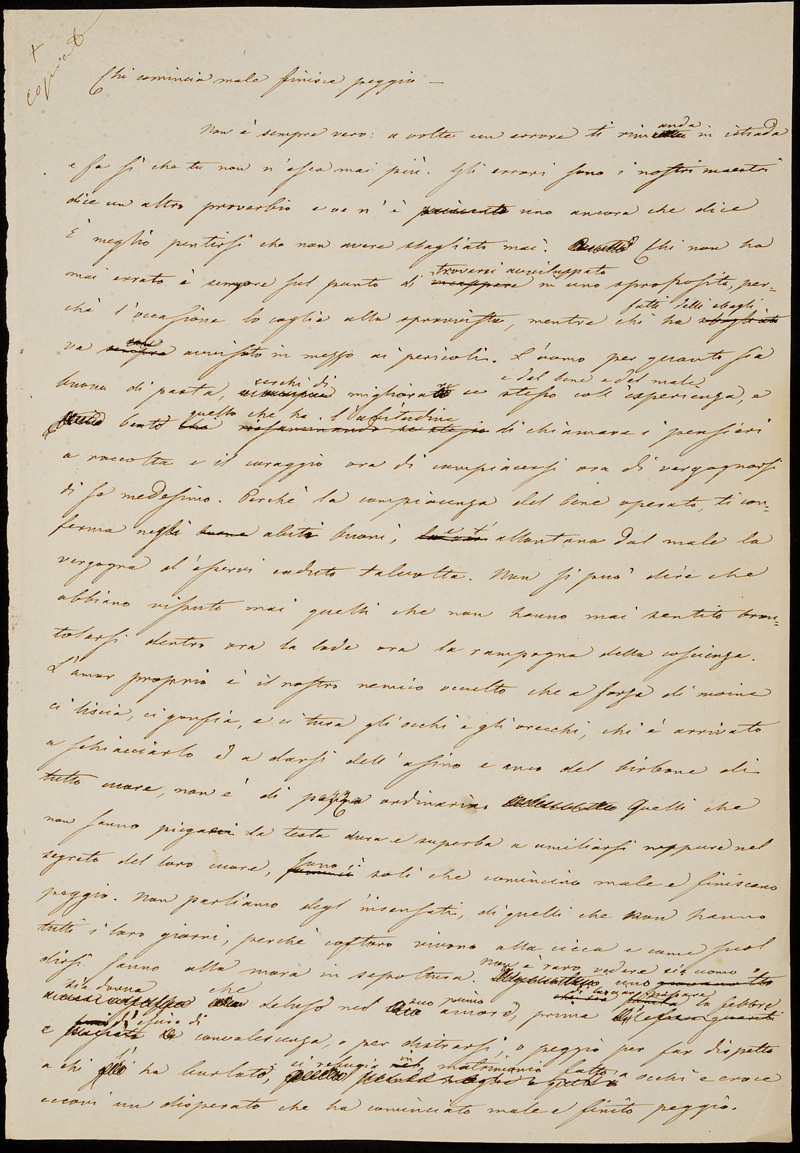 +
copiato
Chi comincia male finisce peggio —
Non è sempre vero: a volte un errore ti rimanda in istrada
e fa sì che tu non n'esca mai più. Gli errori sono i nostri maestri
dice un altro proverbio e ve n'è uno ancora che dice
È meglio pentirsi che non avere sbagliato mai. Chi non ha
mai errato è sempre sul punto di trovarsi avviluppato in uno sproposito, per-
chè l'occasione lo coglie alla sprovvista, mentre chi ha fatti delli sbagli
va avvisato in mezzo ai pericoli. L'uomo per quanto sia
buono di pasta, cerchi di migliorare se stesso coll'esperienza, e del bene e del male, e
beato quello che ha l'abitudine di chiamare i pensieri
a raccolta e il coraggio ora di compiacersi ora di vergognarsi
di se medesimo. Perchè la compiacenza del bene operato, ti con-
ferma negli abiti buoni, t'allontana dal male la
vergogna d'esservi caduto talvolta. Non si può dire che
abbiano vissuto mai quelli che non hanno mai sentito bron-
tolarsi dentro ora la lode ora la rampogna della coscienza.
L'amor proprio è il nostro nemico occulto che a forza di moine
ci liscia, ci gonfia, e ci tura gli occhi e gli orecchi, chi è arrivato
a schiacciarlo e a darsi dell'asino e anco del birbone di
tutto cuore, non è di pezza ordinaria. Quelli che
non sanno piegare la testa dura e superba a umiliarsi neppure nel
segreto del loro cuore, sono i soli che comincino male e finiscano
peggio. Non parliamo degl'insensati, di quelli che non hanno
tutti i loro giorni, perchè costoro vivono alla cieca e come suol
dirsi fanno alla mora in sepoltura. Non è raro vedere sia uomo
sia donna che deluso nel suo primo amore, prima di la febbre
e d'esser di convalescenza, o per distrarsi, o peggio per far dispetto
a chi li ha burlati, si rifugia in matrimonio fatto a occhi e croce
eccovi un disperato che ha cominciato male e finito peggio.